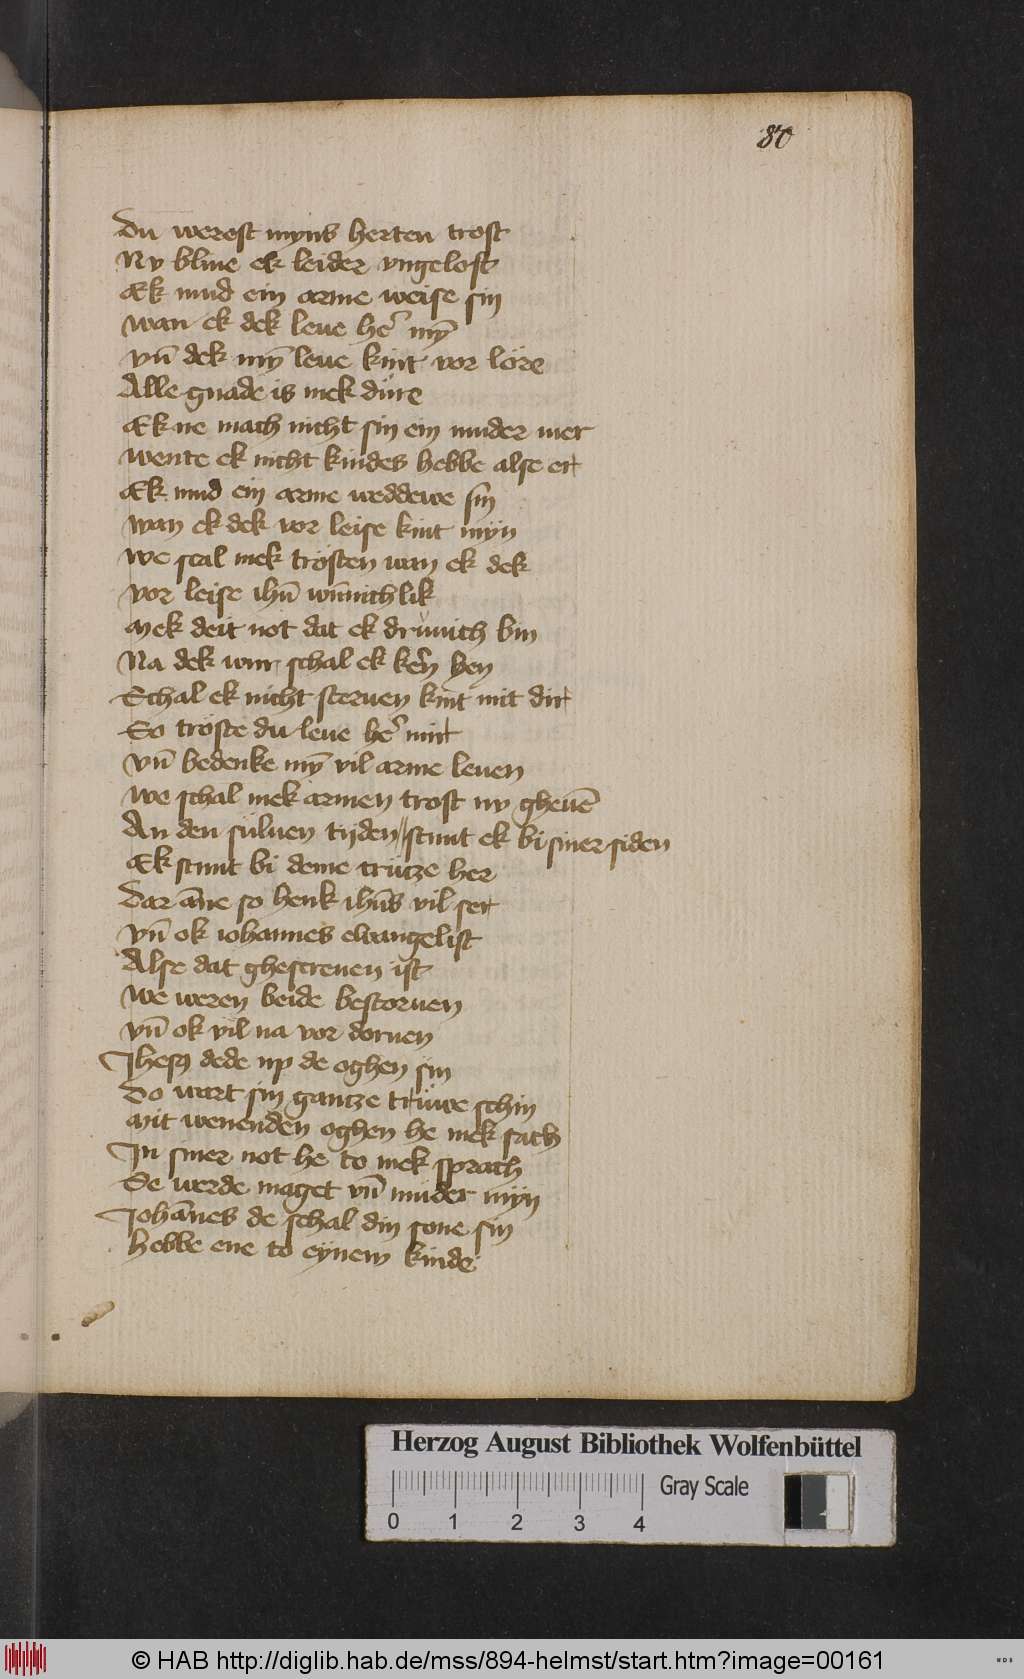 80
Du werest myns herten trost
Nv bliue ek leider vngelost
Ek mud ein arme weise sin
wan ek dek leue he᷑ my̅
vn̅ dek my̅ leue kint vor löre
Alle gnade is mek düre
Ek ne mach nicht sin ein muder mer
wente ek nicht kindes hebbe alse er
Ek mud ein arme weddewe sin
wan ek dek vor leise kint myn
we scal mek trösten wan ek dek
vor leise ihu̅ win̅ichlik
Mek deit not dat ek drüuich bin
Na dek wur schal ek ke᷑n hen
Schal ek nicht steruen kint mit dir
So tröste du leue he᷑ mir
vn̅ bedenke my̅ vil arme leuen
we schal mek armen trost nv gheue̅
An den süluen tyden // stunt ek bi siner siden
Ek stunt bi deme crütze her
Dar an̅e so henk ihu̅s vil ser
vn̅ ok iohannes ewangelist
Alse dat ghescreuen ist
we weren beide bestoruen
vn̅ ok vil na vor doruen
Jhesꝰ dede up de oghen sin
Do wart sin gantze trüwe schin
Mit wenenden oghen he mek sach
In siner not he to mek sprach
Se werde maget vn̅ müder myn
Joha̅nes de schal din sone sin
hebbe ene to eynem kinde
Herzog August Bibliothek Wolfenbüttel
Gray Scale
0 1 2 3 4
© HAB http://diglib.hab.de/mss/894-helmst/start.htm?image=00161